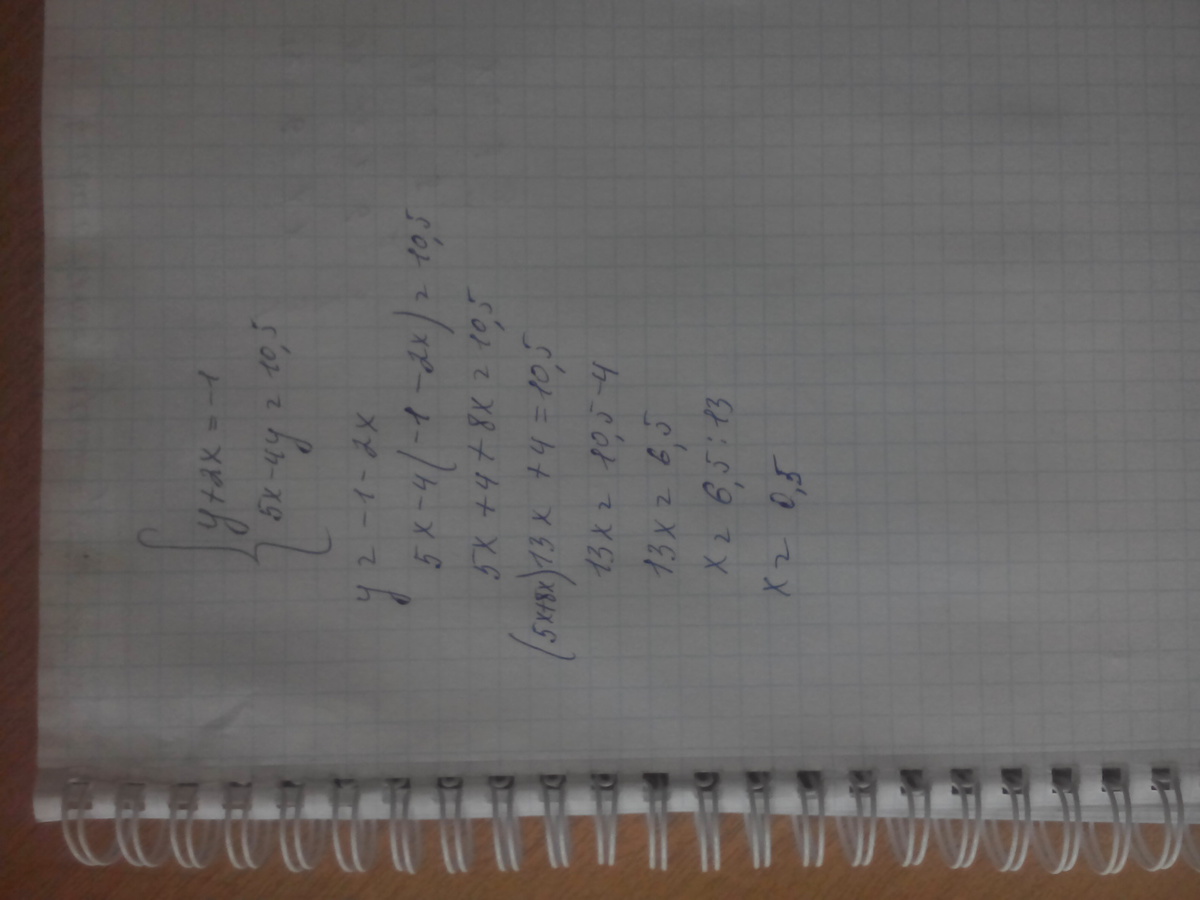 y+2x = -1
5x-4y = 10,5
y = -1-2x
5x-4(-1-2x) = 10,5
5x+4+8x = 10,5
(5x+8x) 13x+4 = 10,5
13x = 10,5-4
13x = 6,5
x = 6,5:13
x = 0,5